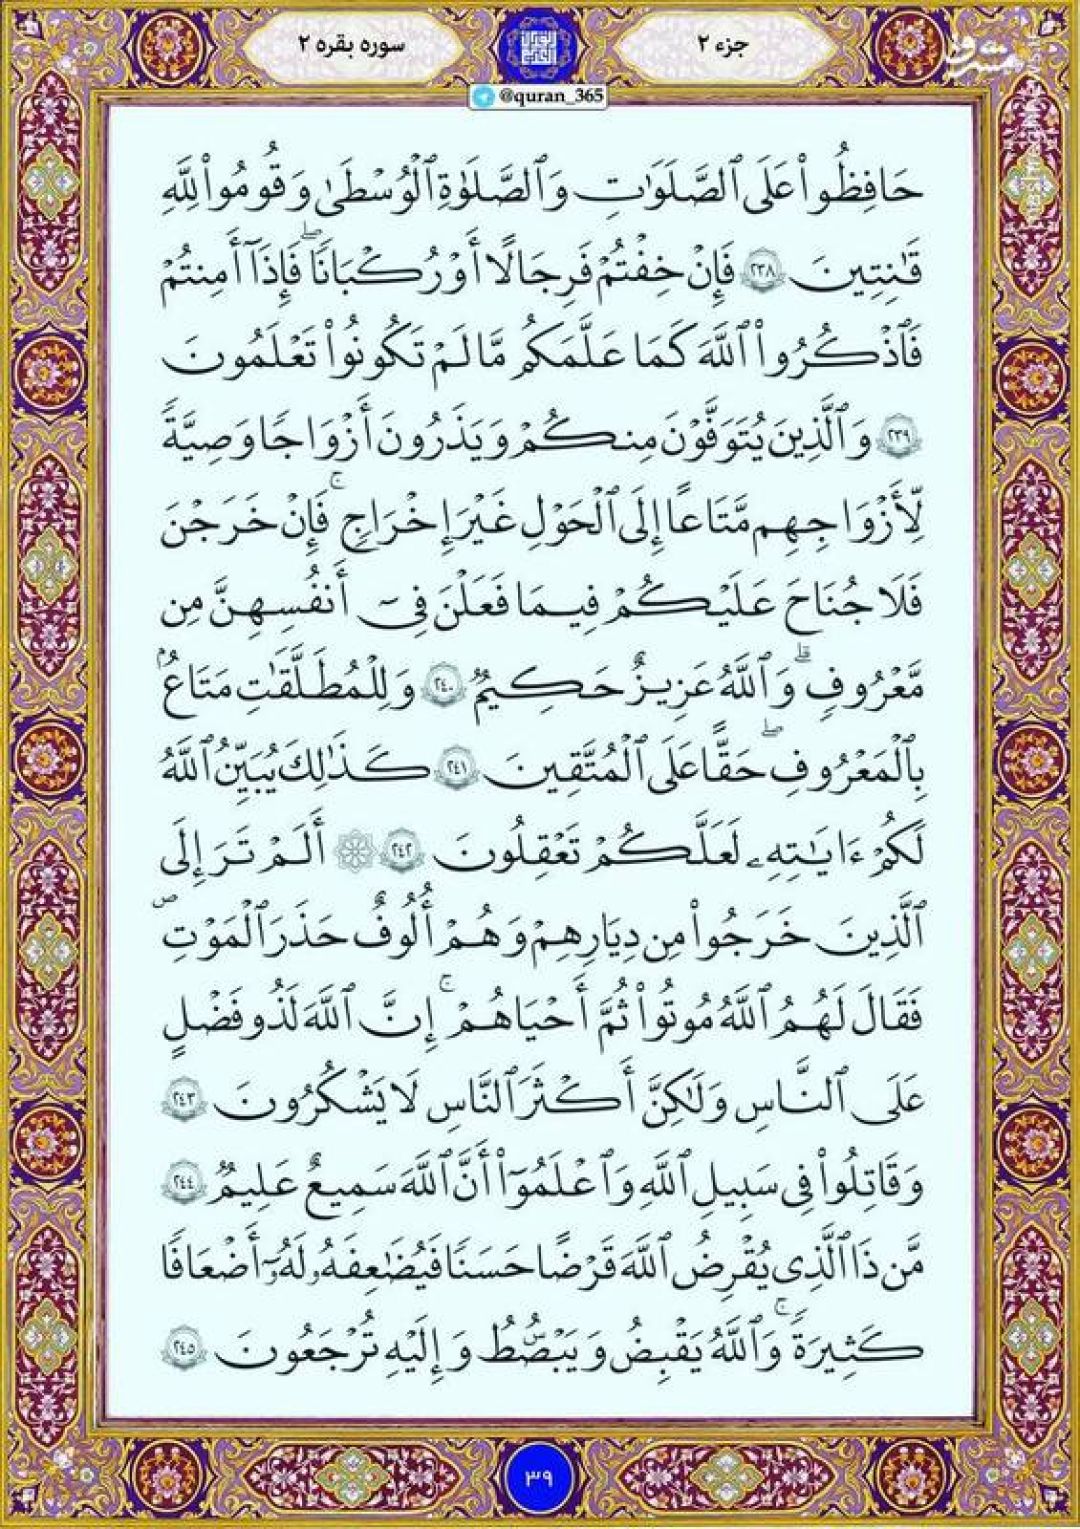 جزء ۲
سوره بقره ۲
@quran_365
حَافِظُوا۟ عَلَى ٱلصَّلَوَٰتِ وَٱلصَّلَوٰةِ ٱلْوُسْطَىٰ وَقُومُوا۟ لِلَّهِ
قَٰنِتِينَ ۲۳۸ فَإِنْ خِفْتُمْ فَرِجَالًا أَوْ رُكْبَانًا ۖ فَإِذَآ أَمِنتُمْ
فَٱذْكُرُوا۟ ٱللَّهَ كَمَا عَلَّمَكُم مَّا لَمْ تَكُونُوا۟ تَعْلَمُونَ
۲۳۹ وَٱلَّذِينَ يُتَوَفَّوْنَ مِنكُمْ وَيَذَرُونَ أَزْوَاجًا وَصِيَّةً
لِّأَزْوَاجِهِم مَّتَاعًا إِلَى ٱلْحَوْلِ غَيْرَ إِخْرَاجٍ ۚ فَإِنْ خَرَجْنَ
فَلَا جُنَاحَ عَلَيْكُمْ فِيمَا فَعَلْنَ فِىٓ أَنفُسِهِنَّ مِن
مَّعْرُوفٍ ۗ وَٱللَّهُ عَزِيزٌ حَكِيمٌ ۲٤۰ وَلِلْمُطَلَّقَٰتِ مَتَاعٌۢ
بِٱلْمَعْرُوفِ ۖ حَقًّا عَلَى ٱلْمُتَّقِينَ ۲٤۱ كَذَٰلِكَ يُبَيِّنُ ٱللَّهُ
لَكُمْ ءَايَٰتِهِۦ لَعَلَّكُمْ تَعْقِلُونَ ۲٤۲ ۞ أَلَمْ تَرَ إِلَى
ٱلَّذِينَ خَرَجُوا۟ مِن دِيَارِهِمْ وَهُمْ أُلُوفٌ حَذَرَ ٱلْمَوْتِ
فَقَالَ لَهُمُ ٱللَّهُ مُوتُوا۟ ثُمَّ أَحْيَاهُمْ ۚ إِنَّ ٱللَّهَ لَذُو فَضْلٍ
عَلَى ٱلنَّاسِ وَلَٰكِنَّ أَكْثَرَ ٱلنَّاسِ لَا يَشْكُرُونَ ۲٤۳
وَقَاتِلُوا۟ فِى سَبِيلِ ٱللَّهِ وَٱعْلَمُوٓا۟ أَنَّ ٱللَّهَ سَمِيعٌ عَلِيمٌ ۲٤٤
مَّن ذَا ٱلَّذِى يُقْرِضُ ٱللَّهَ قَرْضًا حَسَنًا فَيُضَٰعِفَهُۥ لَهُۥٓ أَضْعَافًا
كَثِيرَةً ۚ وَٱللَّهُ يَقْبِضُ وَيَبْصُۜطُ وَإِلَيْهِ تُرْجَعُونَ ۲٤۵
۳۹